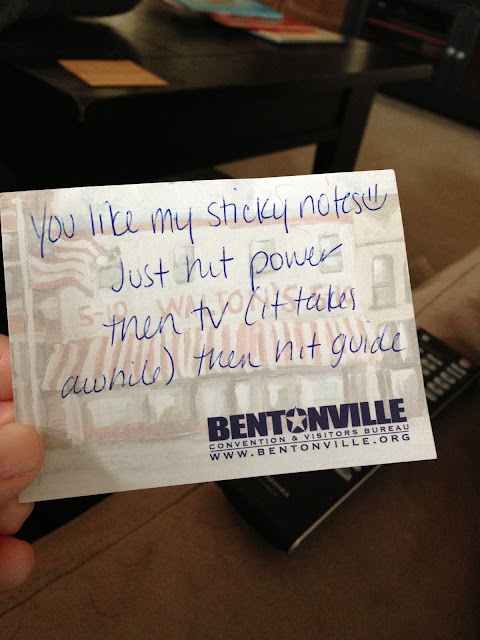 You like my sticky notes
Just hit power
5-10 WALTON'S 5-10
then tv (it takes
awhile) then hit guide
BENTONVILLE
CONVENTION & VISITORS BUREAU
WWW.BENTONVILLE.ORG
TOSHIBA